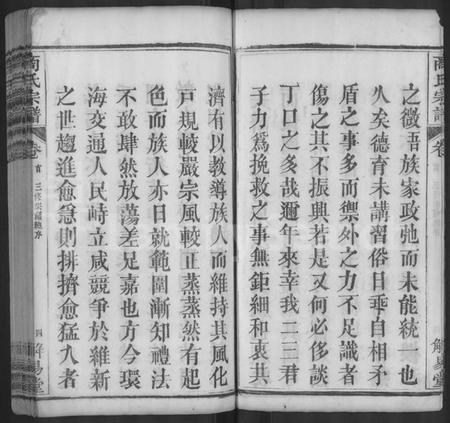 氏宗譜
卷
解易堂
之微吾族家政弛而未能統一也
久矣德育未講習俗日乖自相矛
盾之事多而禦外之力不足識者
傷之其不振興若是又何必侈談
丁口之多哉邇年來幸我二三君
子力爲挽救之事無鉅細和衷共
濟有以教導族人而維持其風化
戶規較嚴宗風較正蒸蒸然有起
色而族人亦日就範圍漸知禮法
不敢肆然放蕩差足嘉也方今環
海交通人民峙立咸競爭於維新
之世趨進愈急則排擠愈猛九者
氏宗譜
卷首
三修序
四
解易堂